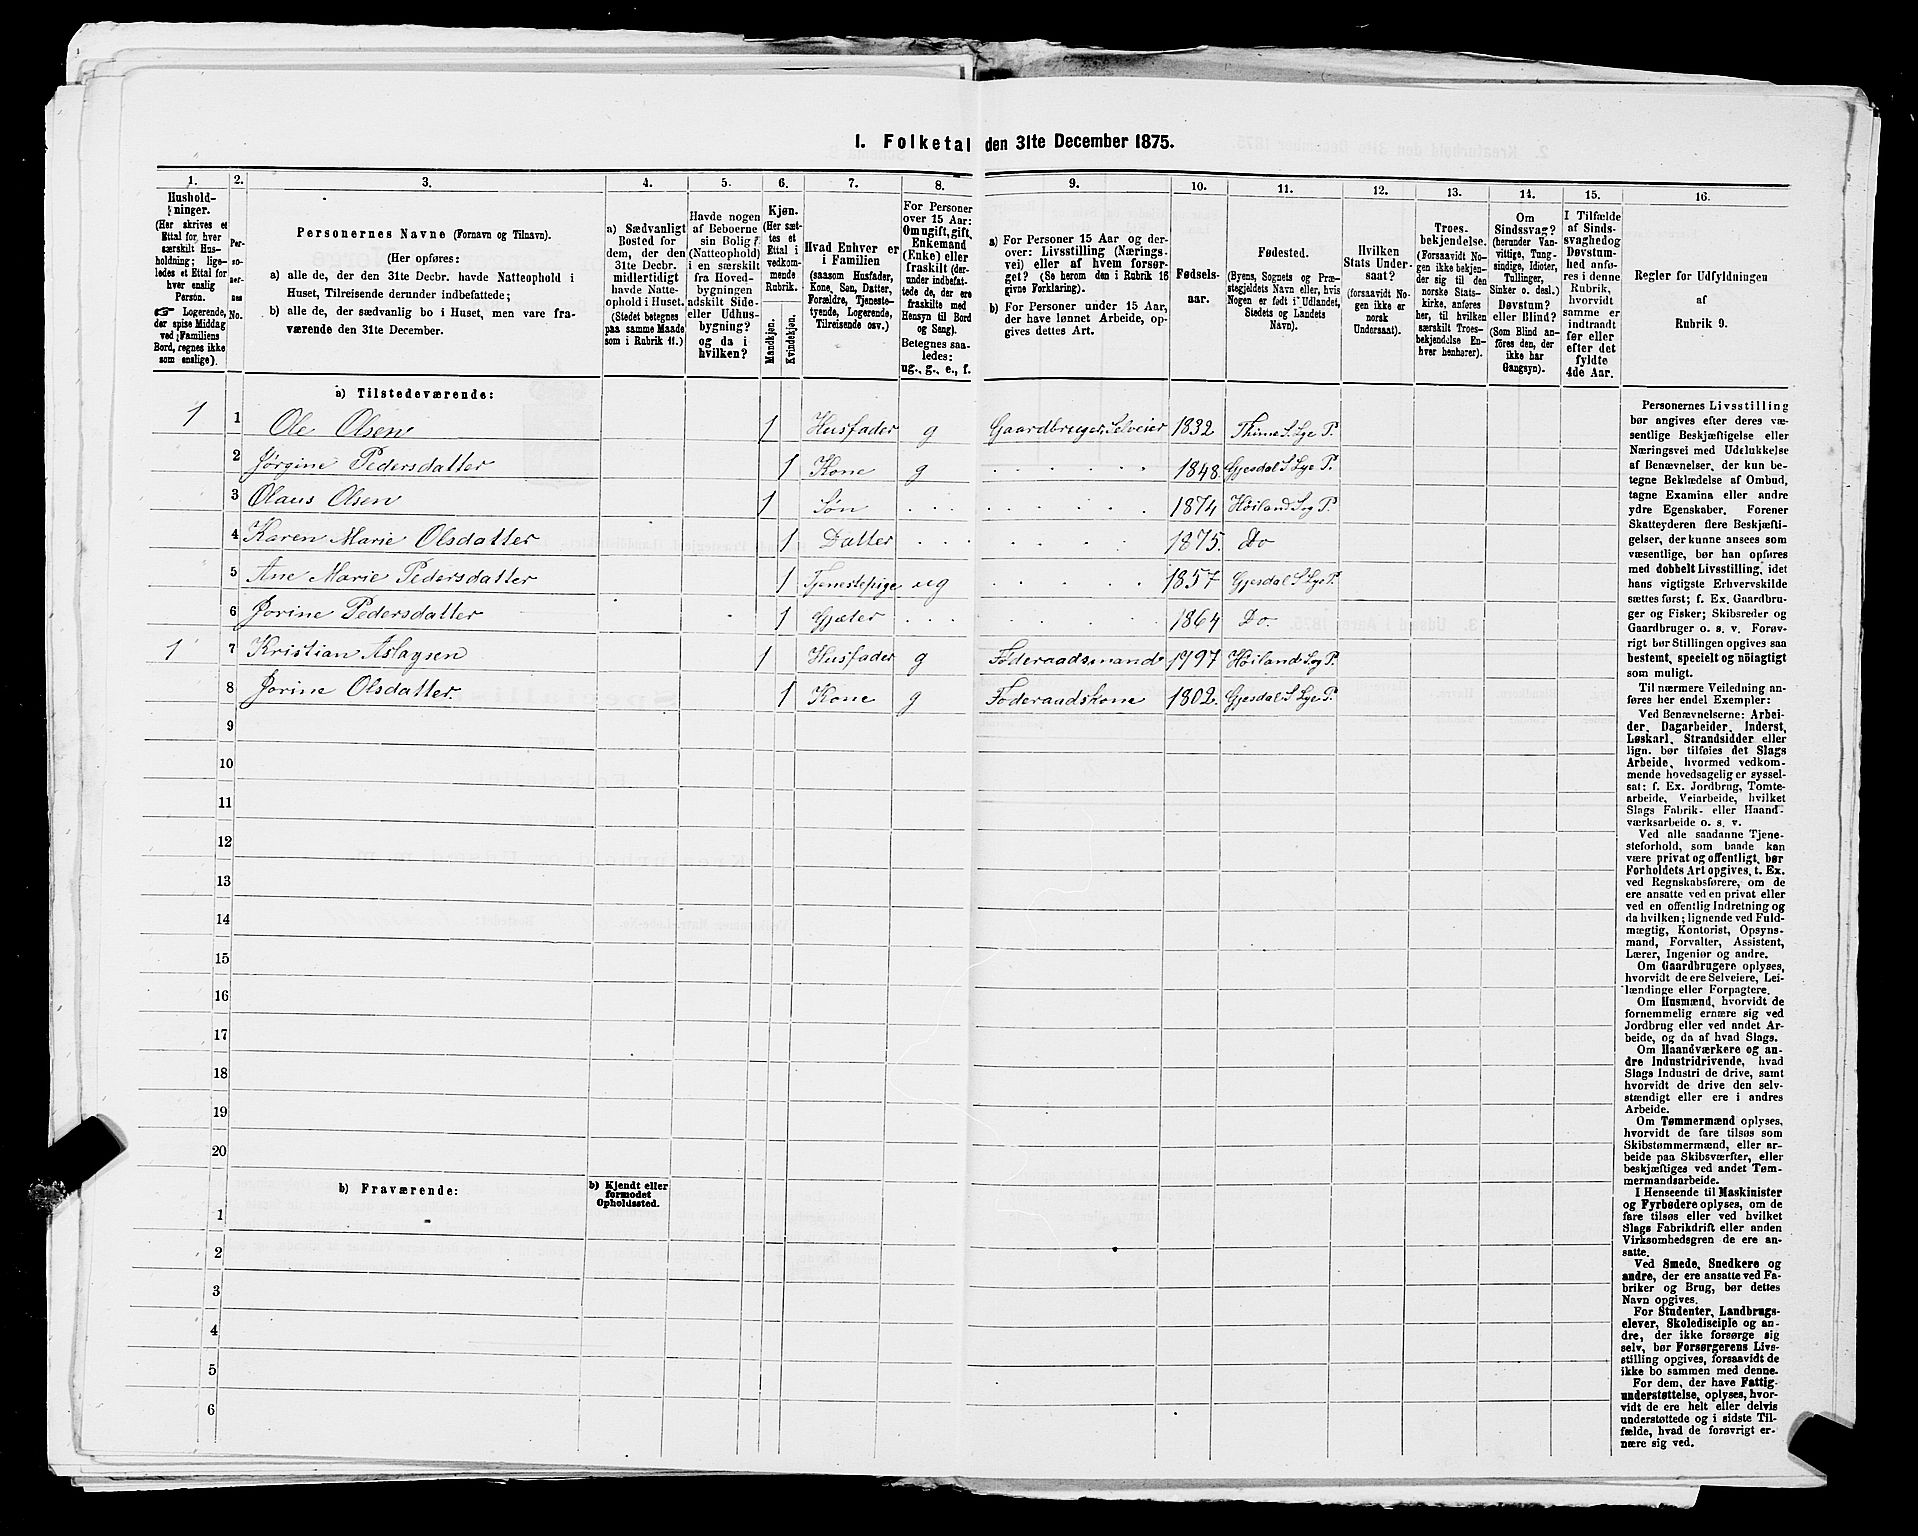 1. Folketal den 31te December 1875.
1. 2. 3. 4. 5. 6. 7. 8. 9. 10. 11. 12. 13. 14. 15. 16.
Hushold-
ninger.
(Her skrives et
Ettal for hver
særskilt Hus-
holdning; lige-
ledes et Ettal for
hver enslig
Person.
☞ Logerende,
der spise Middag
ved Familiens
Bord, regnes ikke
som enslige).
Per-
so-
ner-
nes
No.
Personernes Navne (Fornavn og Tilnavn).
(Her opføres:
a) alle de, der den 31te Decbr. havde Natteophold i
Huset, Tilreisende derunder indbefattede;
b) alle de, der sædvanlig bo i Huset, men vare fra-
værende den 31te December.
a) Sædvanligt
Bosted for
dem, der den
31te Decbr.
midlertidigt
havde Natte-
ophold i Huset.
(Stedet betegnes
paa samme Maade
som i Rubrik 11.)
Havde nogen
af Beboerne
sin Bolig
(Natteophold)
i en særskilt
fra Hoved-
bygningen
adskilt Side-
eller Udhus-
bygning?
og da i
hvilken?
Kjøn.
(Her sæt-
tes et
Ettal i
vedkom-
mende
Rubrik.
Mandkjøn.
Kvindekjøn.
Hvad Enhver er
i Familien
(saasom Husfader,
Kone, Søn, Datter,
Forældre, Tjeneste-
tyende, Logerende,
Tilreisende osv.)
For Personer
over 15 Aar:
Om ugift, gift,
Enkemand
(Enke) eller
fraskilt (der-
under indbefat-
tede de, der ere
fraskilte med
Hensyn til Bord
og Seng).
Betegnes saa-
ledes:
ug., g., e., f.
a) For Personer 15 Aar og der-
over: Livsstilling (Nærings-
vei) eller af hvem forsør-
get? (Se herom den i Rubrik 16
givne Forklaring).
b) For Personer under 15 Aar,
der have lønnet Arbeide, op-
gives dettes Art.
Fødsels-
aar.
Fødested.
(Byens, Sognets og Præ-
stegjeldets Navn eller, hvis
Nogen er født i Udlandet,
Stedets og Landets
Navn).
Hvilken
Stats Under-
saat?
(forsaavidt No-
gen ikke er
norsk
Undersaat).
Troes-
bekjendelse.
(Forsaavidt No-
gen ikke bekjen-
der sig til den
norske Stats-
kirke, anføres
her, til hvilken
særskilt Troes-
bekjendelse En-
hver henhører).
Om
Sindssvag?
(herunder Van-
vittige, Tung-
sindige, Idioter,
Tullinger,
Sinker o. desl.)
Døvstum?
eller Blind?
(Som Blind an-
føres den, der
ikke har
Gangsyn).
I Tilfælde
af Sinds-
svaghed og
Døvstum-
hed anfø-
res i denne
Rubrik,
hvorvidt
samme er
indtraadt
før eller
efter det
fyldte
4de Aar.
Regler for Udfyldningen
af
Rubrik 9.
a) Tilstedeværende:
1 1 Ole Olsen 1 Husfader g Gaardbruger, Selveier 1832 Thime S. Lye P.
2 Jørgine Pedersdatter 1 Kone g 1848. Gjesdal S Lye P.
3 Olaus Olsen 1 Søn 1874 Høiland S og P.
4 Karen Marie Olsdatter 1 Datter 1875. Do
5 Ane Marie Pedersdatter 1 Tjenestepige ug 1857 Gjesdal S Lye P.
6 Jorine Pedersdatter 1 Gjæter 1864 Do.
1 7 Kristian Aslagsen 1 Husfader g Føderaadsmand 1797 Høiland S. og P.
8 Jorine Olsdatter. 1 Kone g Føderaadskone 1802. Gjesdal S Lye P.
9
10
11
12
13
14
15
16
17
18
19
20
b) Fraværende:
b) Kjendt eller
formodet
Opholdssted.
1
2
3
4
5
6
Personernes Livsstilling
bør angives efter deres væ-
sentlige Beskjæftigelse eller
Næringsvei med Udelukkelse
af Benævnelser, der kun be-
tegne Beklædelse af Ombud,
tagne Examina eller andre
ydre Egenskaber. Forener
Skatteyderen flere Beskjæfti-
gelser, der kunne ansees som
væsentlige, bør han opføres
med dobbelt Livsstilling, idet
hans vigtigste Erhvervskilde
sættes først; f. Ex. Gaardbru-
ger og Fisker; Skibsreder og
Gaardbruger o. s. v. Forøv-
rigt bør Stillingen opgives saa
bestemt, specielt og nöiagtigt
som muligt.
Til nærmere Veiledning an-
føres her endel Exempler:
Ved Benævnelserne: Arbei-
der, Dagarbeider, Inderst,
Løskarl, Strandsidder eller
lign. bør tilføies det Slags
Arbeide, hvormed vedkom-
mende hovedsagelig er syssel-
sat: f. Ex. Jordbrug, Tomte-
arbeide, Veiarbeide, hvilket
Slags Fabrik- eller Haand-
værksarbeide o. s. v.
Ved alle saadanne Tjene-
steforhold, som baade kan
være privat og offentligt, bør
Forholdets Art opgives, t. Ex.
ved Regnskabsførere, om de
ere ansatte ved en privat eller
ved en offentlig Indretning og
da hvilken; lignende ved Fuld-
mægtig, Kontorist, Opsyns-
mand, Forvalter, Assistent,
Lærer, Ingeniør og andre.
Om Gaardbrugere oplyses,
hvorvidt de ere Selveiere, Lei-
lændinge eller Forpagtere.
Om Husmænd, hvorvidt de
fornemmelig ernære sig ved
Jordbrug eller ved andet Ar-
beide, og da af hvad Slags.
Om Haandværkere og an-
dre Industridrivende, hvad
Slags Industri de drive, samt
hvorvidt de drive den selv-
stændigt eller ere i andres
Arbeide.
Om Tømmermænd oplyses,
hvorvidt de fare tilsøs som
Skibstømmermænd, eller ar-
beide paa Skibsværfter, eller
beskjæftiges ved andet Tøm-
mermandsarbeide.
I Henseende til Maskinister
og Fyrbødere oplyses, om de
fare tilsøs eller ved hvilket
Slags Fabrikdrift eller anden
Virksomhedsgren de ere an-
satte.
Ved Smede, Snedkere og
andre, der ere ansatte ved Fa-
briker og Brug, bør dettes
Navn opgives.
For Studenter, Landbrugs-
elever, Skoledisciple og an-
dre, der ikke forsørge sig
selv, bør Forsørgerens Livs-
stilling opgives, forsaavidt de
ikke bo sammen med denne.
For dem, der have Fattig-
understøttelse, oplyses, hvor-
vidt de ere helt eller delvis
understøttede og i sidste Til-
fælde, hvad de forøvrigt er-
nære sig ved.